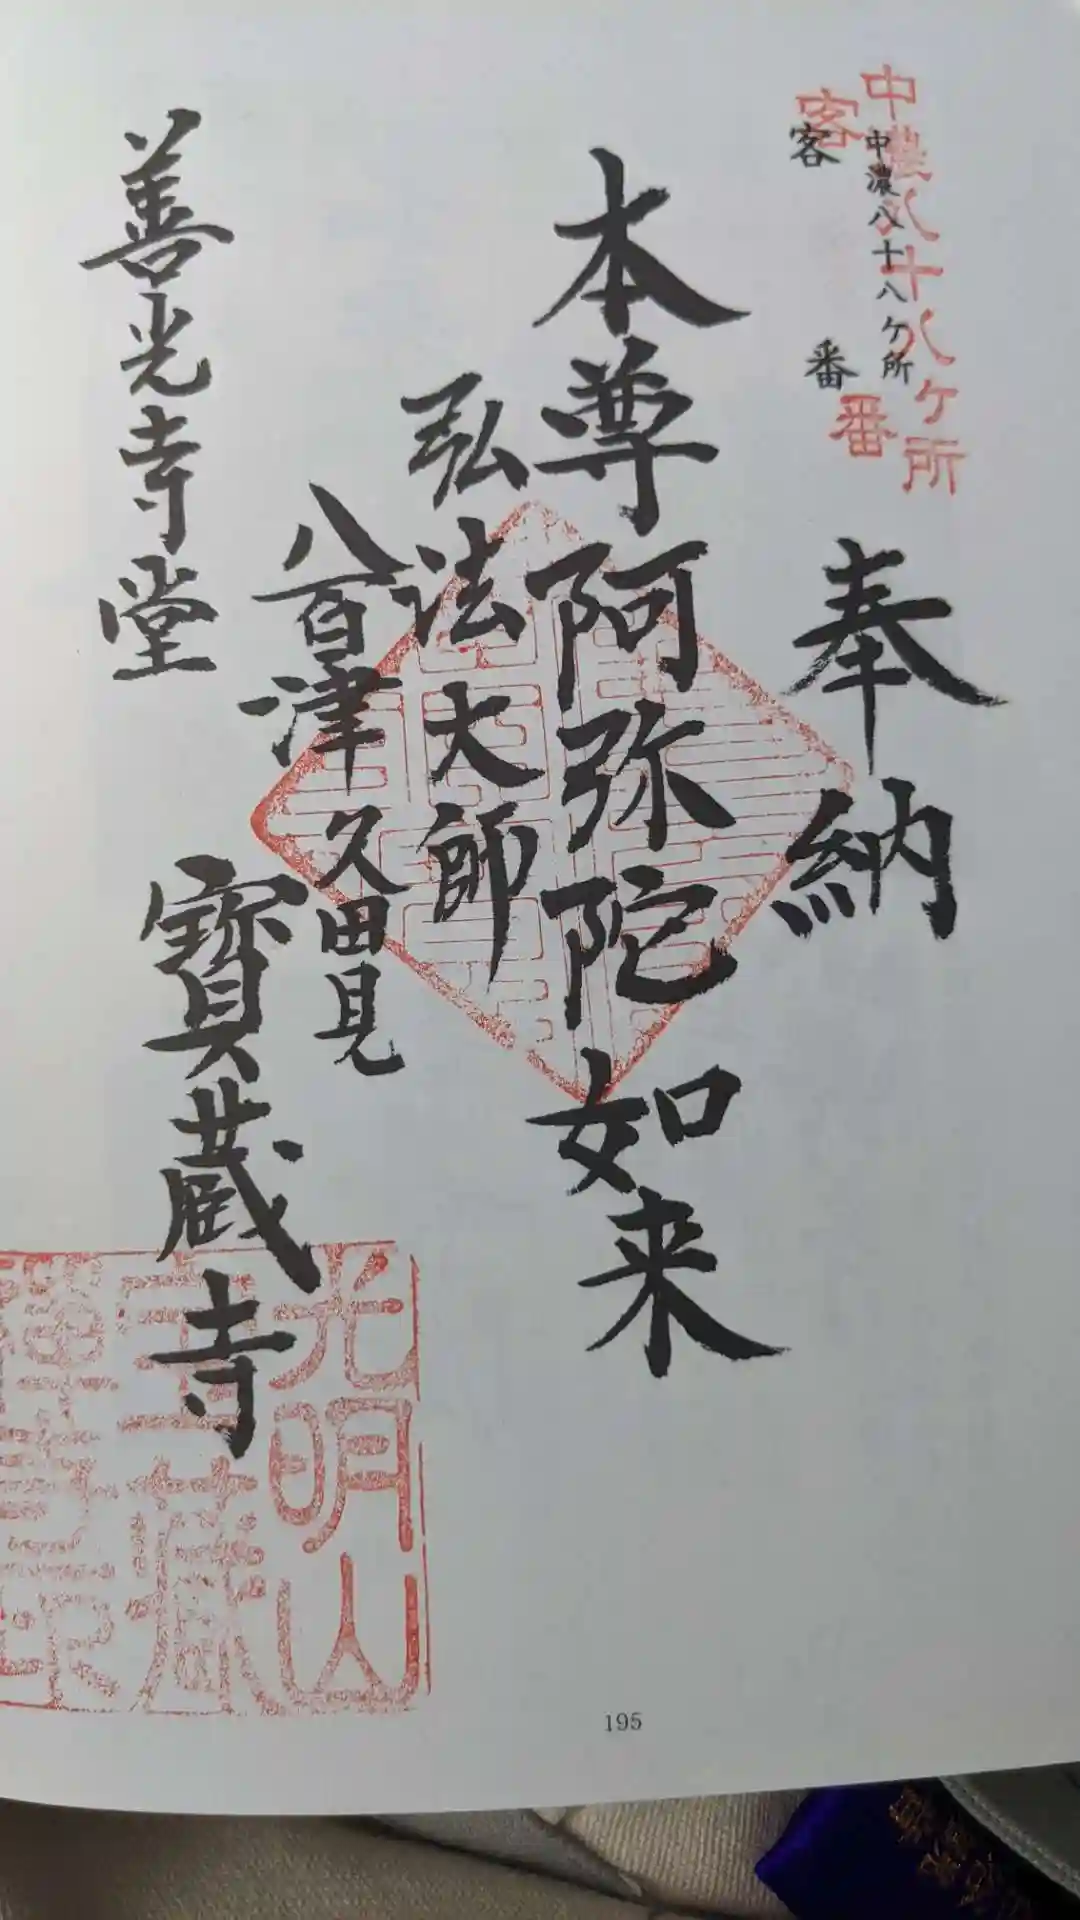 中濃八十八ケ所
客 番
中濃八十八ケ所
客 番
奉納
本尊阿弥陀如来
弘法大師
八百津久田見
善光寺堂
寳蔵寺
光明山
195